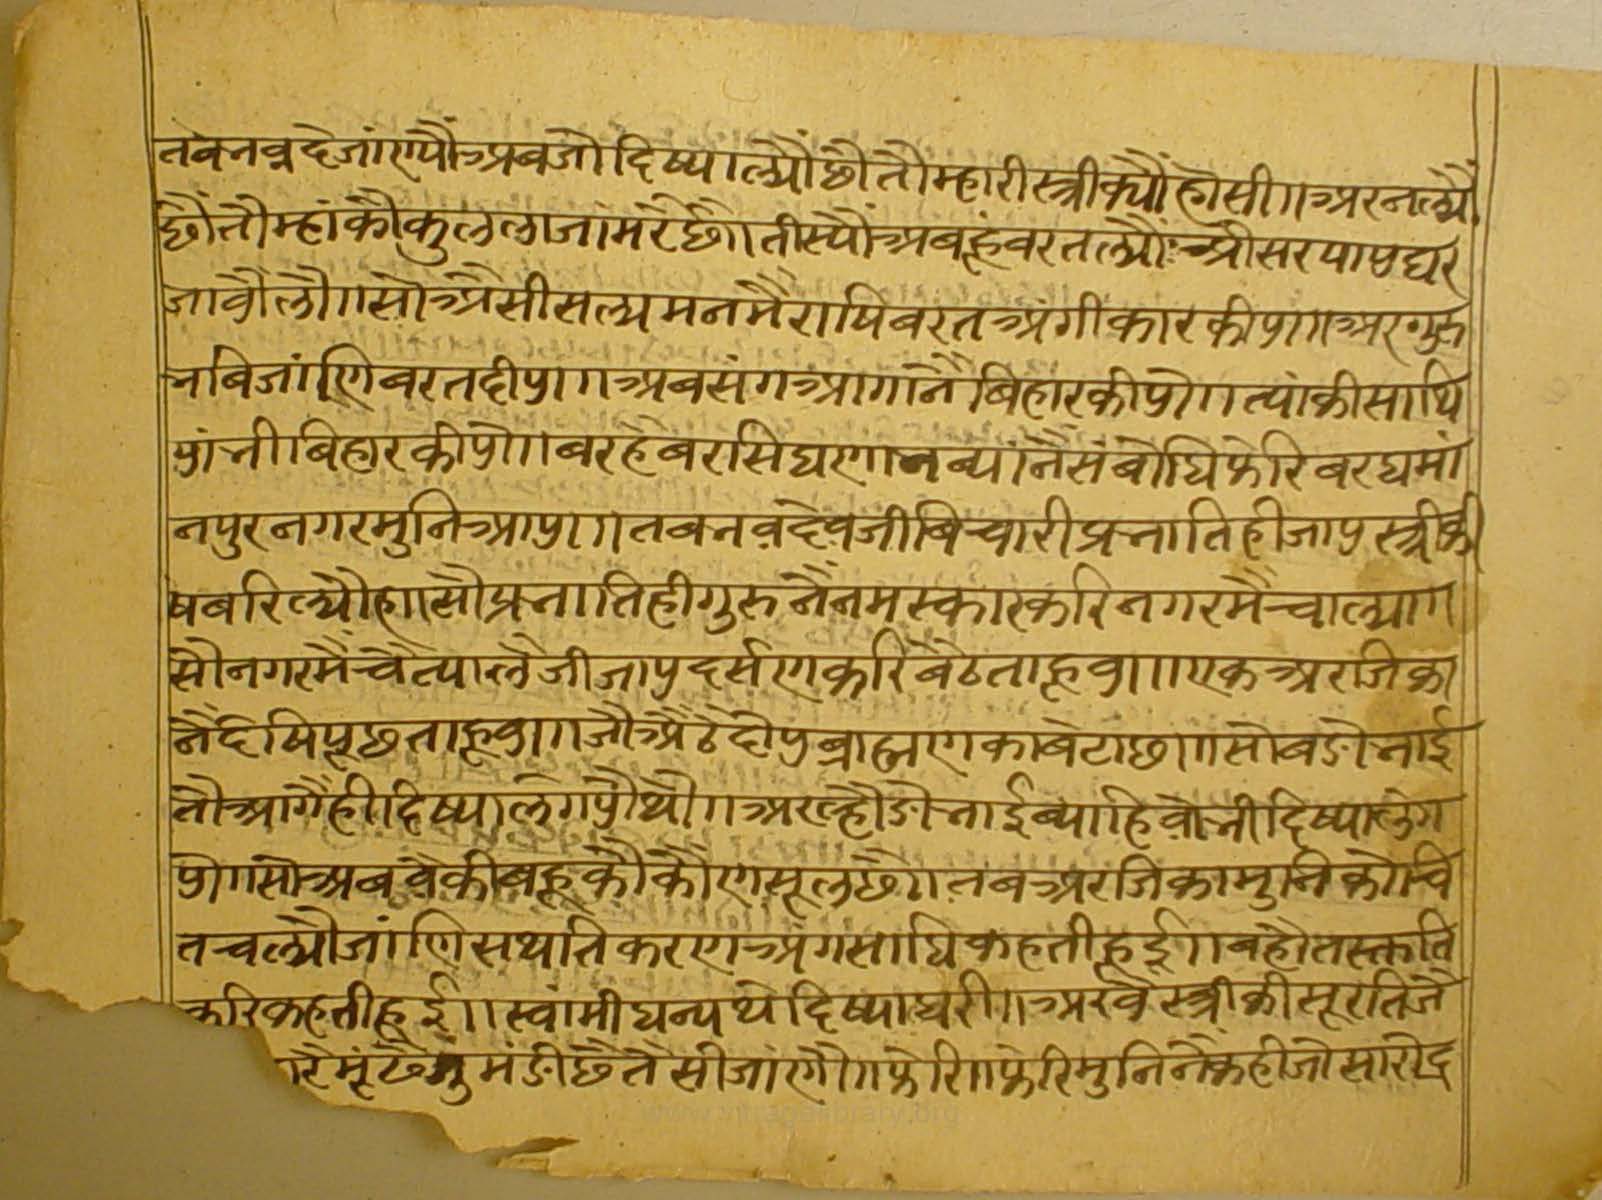 तबनवदेजांण्यौंअबजोदिष्याल्यौंछौंतौम्हारीस्त्रीक्यौंहोसी।।अरनल्यौं
छौंतौम्हांकौकुललाजांमरैछै।।तीस्यौंअबहूंबरतल्यौं।ओसरपाएघर
जावौंलौ।।सोअैसीसल्यमनमैंराषिबरतअंगीकारकीए।।अरगुरु
नबिजांणिबरतदीए।।अबसंगआगांनैंबिहारकीए।।त्यांकीसाथि
एांनीबिहारकीए।।बरहैबरसिघणानव्यांनैंसंबोधिफेरिबरधमां
नपुरनगरमुनिआए।।तबनवदेवजीबिचारीप्रनातिहीजाएस्त्रीकी
षबरिल्यौहों।।सोप्रनातिहीगुरुनैंनमस्कारकरिनगरमैंचाल्या।।
सोनगरमैंचैत्यालैजीजाएदर्सणकरिबैठताहूवा।।एकअरजिका
नैंदेषिपूछताहूवा।।जोअैठैदोएब्राह्मणकाबेटाछा।।सोबडोनाई
तौआगैंहींदिष्यालेगएौथौ।।अरल्हौडोनाईब्याहिवोनीदिष्यालेग
एौ।।सोअबवैकीबहूकौकौंणसूलछै।।तबअरजिकामुनिकोचि
तचल्यौजांणिसथतिकरणअंगसाधिकहतीहूई।।बहोतस्तुति
करिकहतीहूई।।स्वांमीधन्यथेदिष्याधरी।।अरवैस्त्रीकीसूरतिजै
मुनिनैंकहीजोसारोद्र